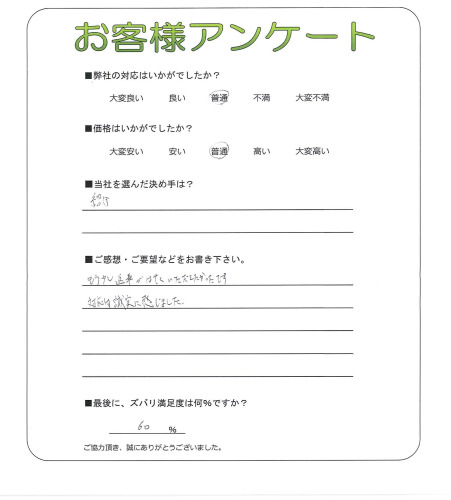 お客様アンケート
■弊社の対応はいかがでしたか？
大変良い 良い 普通 不満 大変不満
■価格はいかがでしたか？
大変安い 安い 普通 高い 大変高い
■当社を選んだ決め手は？
紹介
■ご感想・ご要望などをお書き下さい。
もう少し返事がはやくいただきたかったです
対応は誠実に感じました。
■最後に、ズバリ満足度は何％ですか？
60 ％
ご協力頂き、誠にありがとうございました。